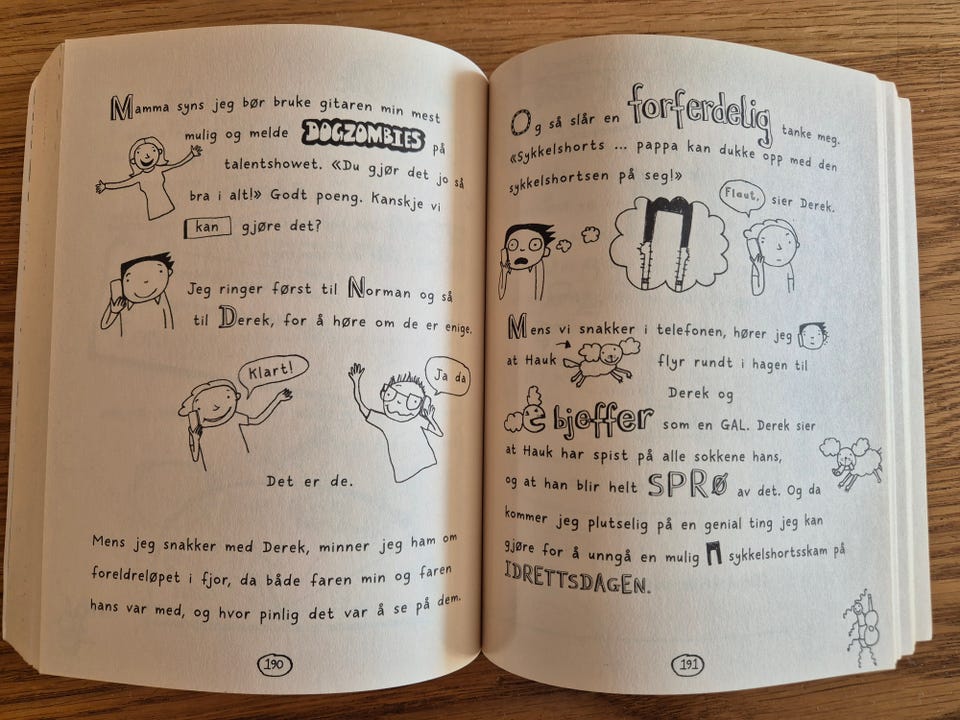 Mamma syns jeg bør bruke gitaren min mest
mulig og melde DOGZOMBIES på
talentshowet. «Du gjør det jo så
bra i alt!» Godt poeng. Kanskje vi
kan gjøre det?
Jeg ringer først til Norman og så
til Derek, for å høre om de er enige.
Klart!
Ja da
Det er de.
Mens jeg snakker med Derek, minner jeg ham om
foreldreløpet i fjor, da både faren min og faren
hans var med, og hvor pinlig det var å se på dem.
190
Og så slår en forferdelig tanke meg.
«Sykkelshorts ... pappa kan dukke opp med den
sykkelshortsen på seg!»
Flaut, sier Derek.
Mens vi snakker i telefonen, hører jeg
at Hauk flyr rundt i hagen til
Derek og
bjeffer som en GAL. Derek sier
at Hauk har spist på alle sokkene hans,
og at han blir helt SPRØ av det. Og da
kommer jeg plutselig på en genial ting jeg kan
gjøre for å unngå en mulig sykkelshortsskam på
IDRETTSDAGEN.
191